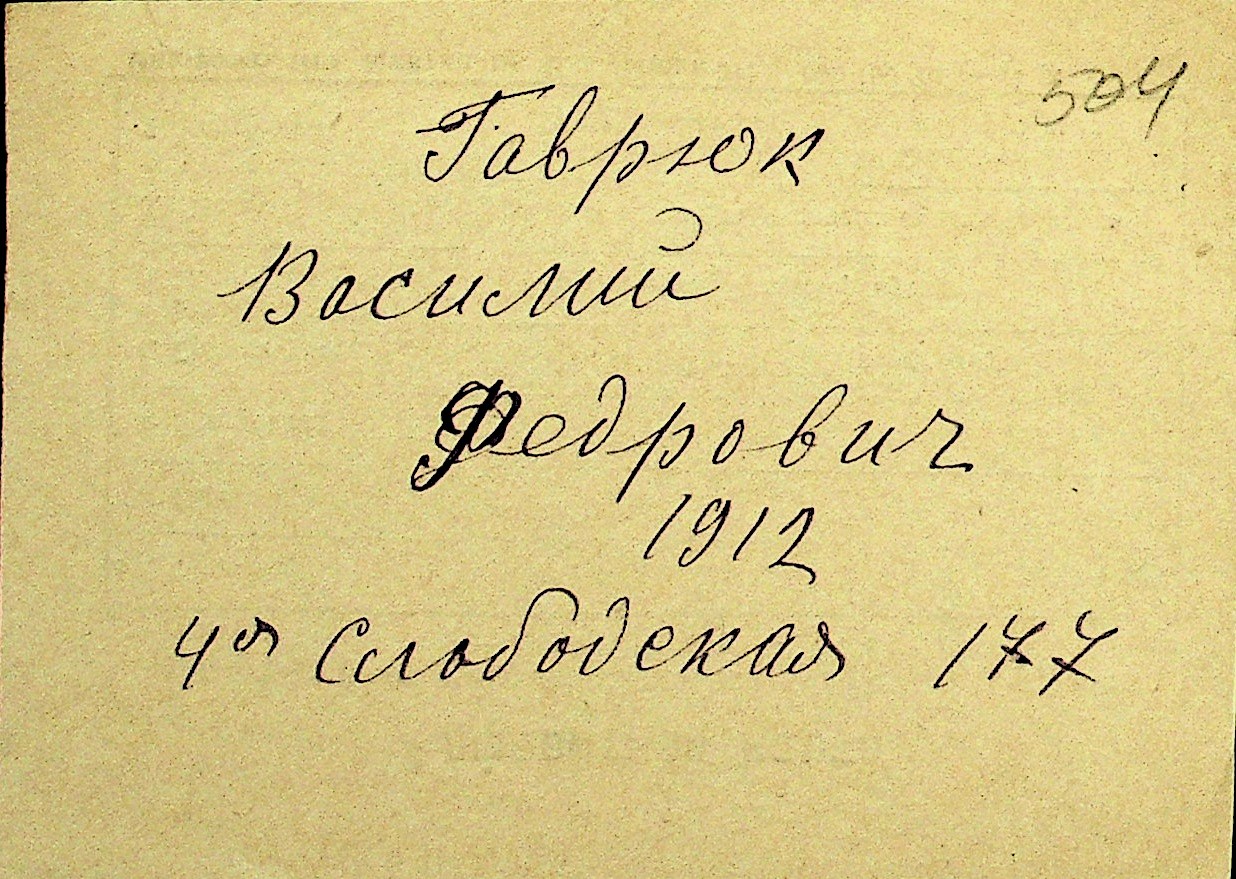 504
Гаврюк
Василий
Федрович
1912
4ая Слободская 177